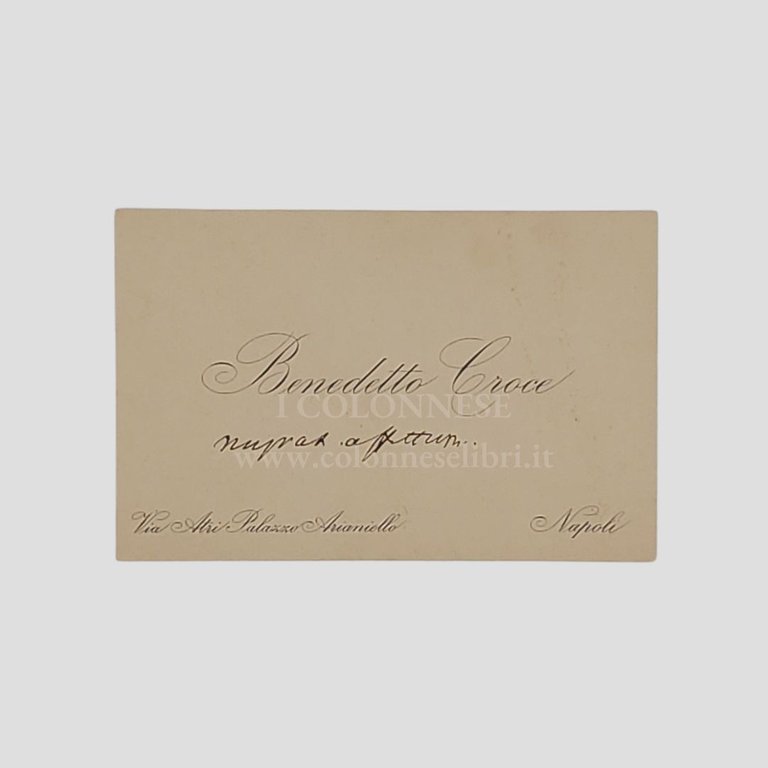 Benedetto Croce
I COLONNESE
www.colonneselibri.it
Via Atri Palazzo Arianiello
Napoli